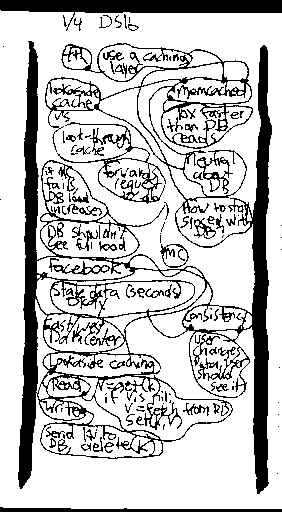 1/4 DS16
use a caching
layer
lookaside
cache
memcached
vs
10x faster
than DB
reads
look-through
cache
forwards
request
to DB
neutral
about
DB
if it
fails,
DB load
increases
How to stay
synced with
DB
DB shouldn't
see full load
MC
facebook
stale data (seconds)
okay
consistency
east/west
Datacenter
user
changes
data, user
should
see it
lookaside caching
Read
v=get(k)
if v is nil:
v = fetch from DB
set(k,v)
write
send k,v to
DB, delete(k)